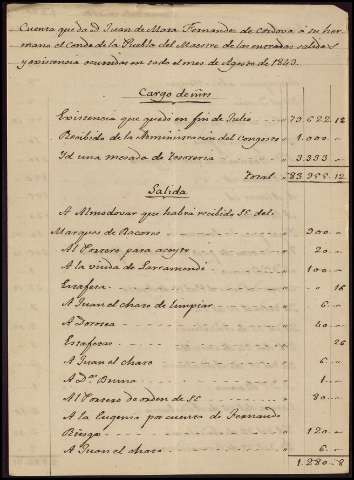 Cuenta que da dn Juan de Mata Fernandez de Cordova á su her-
mano el Conde de la Puebla del Maestre de las entradas salidas
y existencia ocurridas en todo el mes de Agosto de 1840.
Cargo de mrs
Existencia que quedó en fin de Julio 79.622.12
Recibido de la Administracion del Congosto " 1.000 "
Id una mesada de Tesoreria " 3.333 "
Total " 83.955.12
Salida
A Almodovar que habrá recibido S.E. del
Marques de Bacares " 900 "
Al Portero para aceyte " 20 "
A la viuda de Larramendi " 100 "
Estafeta " " 16
A Juan el chato de limpiar " 6 "
A Dorotea " 40 "
Estafetas 26
A Juan el chato " 6 "
A Dn Bruno " 1 "
Al Portero de orden de S.E. " 80 "
A la Eugenia por cuenta de Fernando
Riesgo " 120 "
A Juan el chato " 6 "
1.280 8